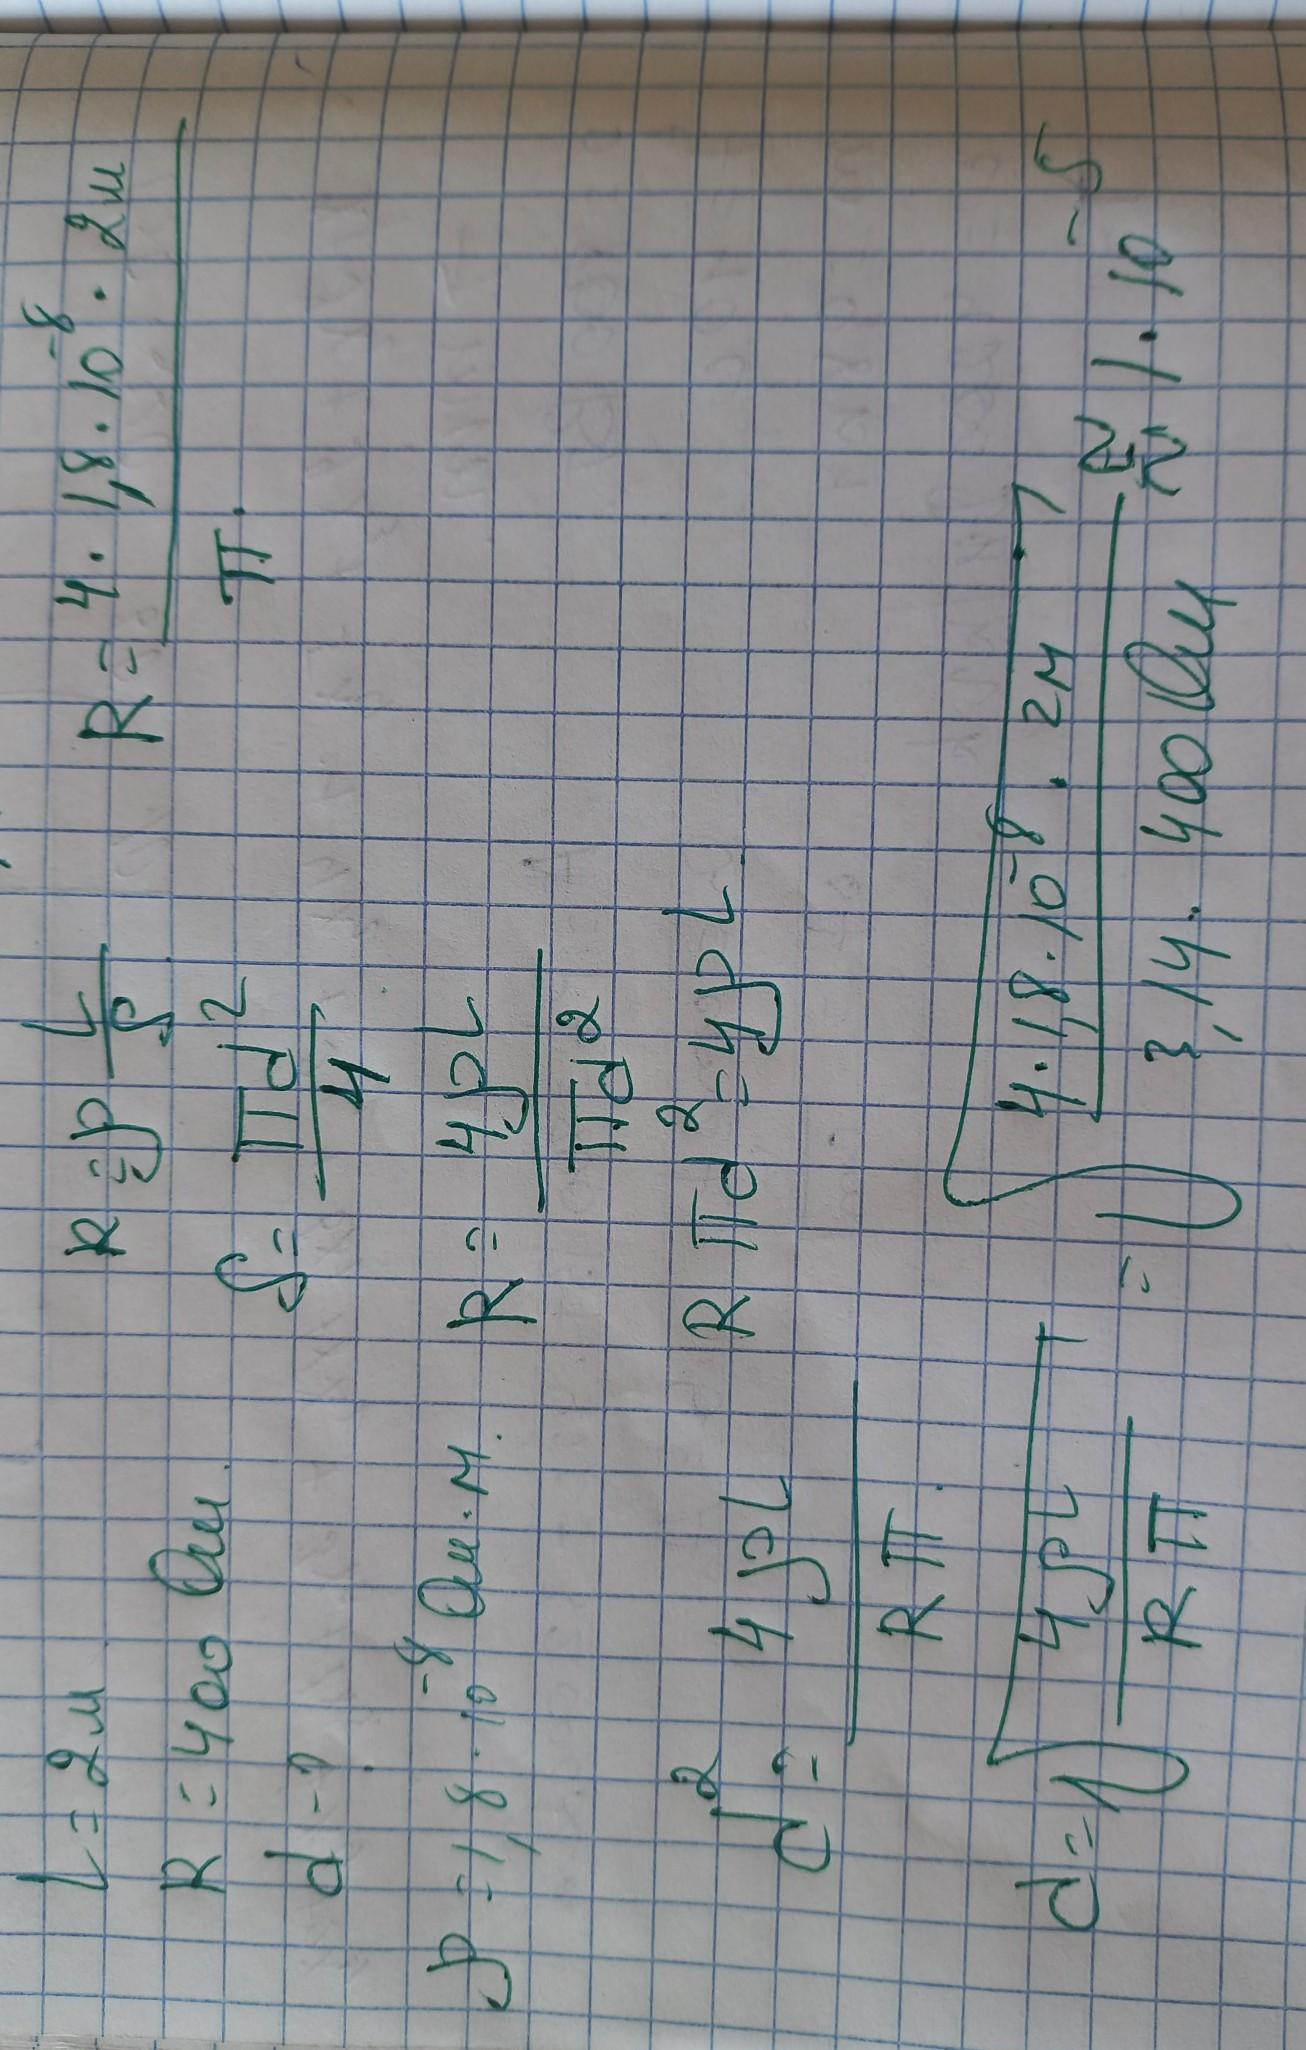 L = 2м
R = 400 Ом.
d - ?
ρ = 1,8 · 10⁻⁸ Ом · м.
R = ρ L/S
S = πd²/4
R = 4ρL/πd²
R πd² = 4ρL
R = 4 · 1,8 · 10⁻⁸ · 2м / π.
d² = 4ρL / R π.
d = √(4ρL / R π) = √(4 · 1,8 · 10⁻⁸ · 2м / 3,14 · 400 Ом) ≈ 1 · 10⁻⁵